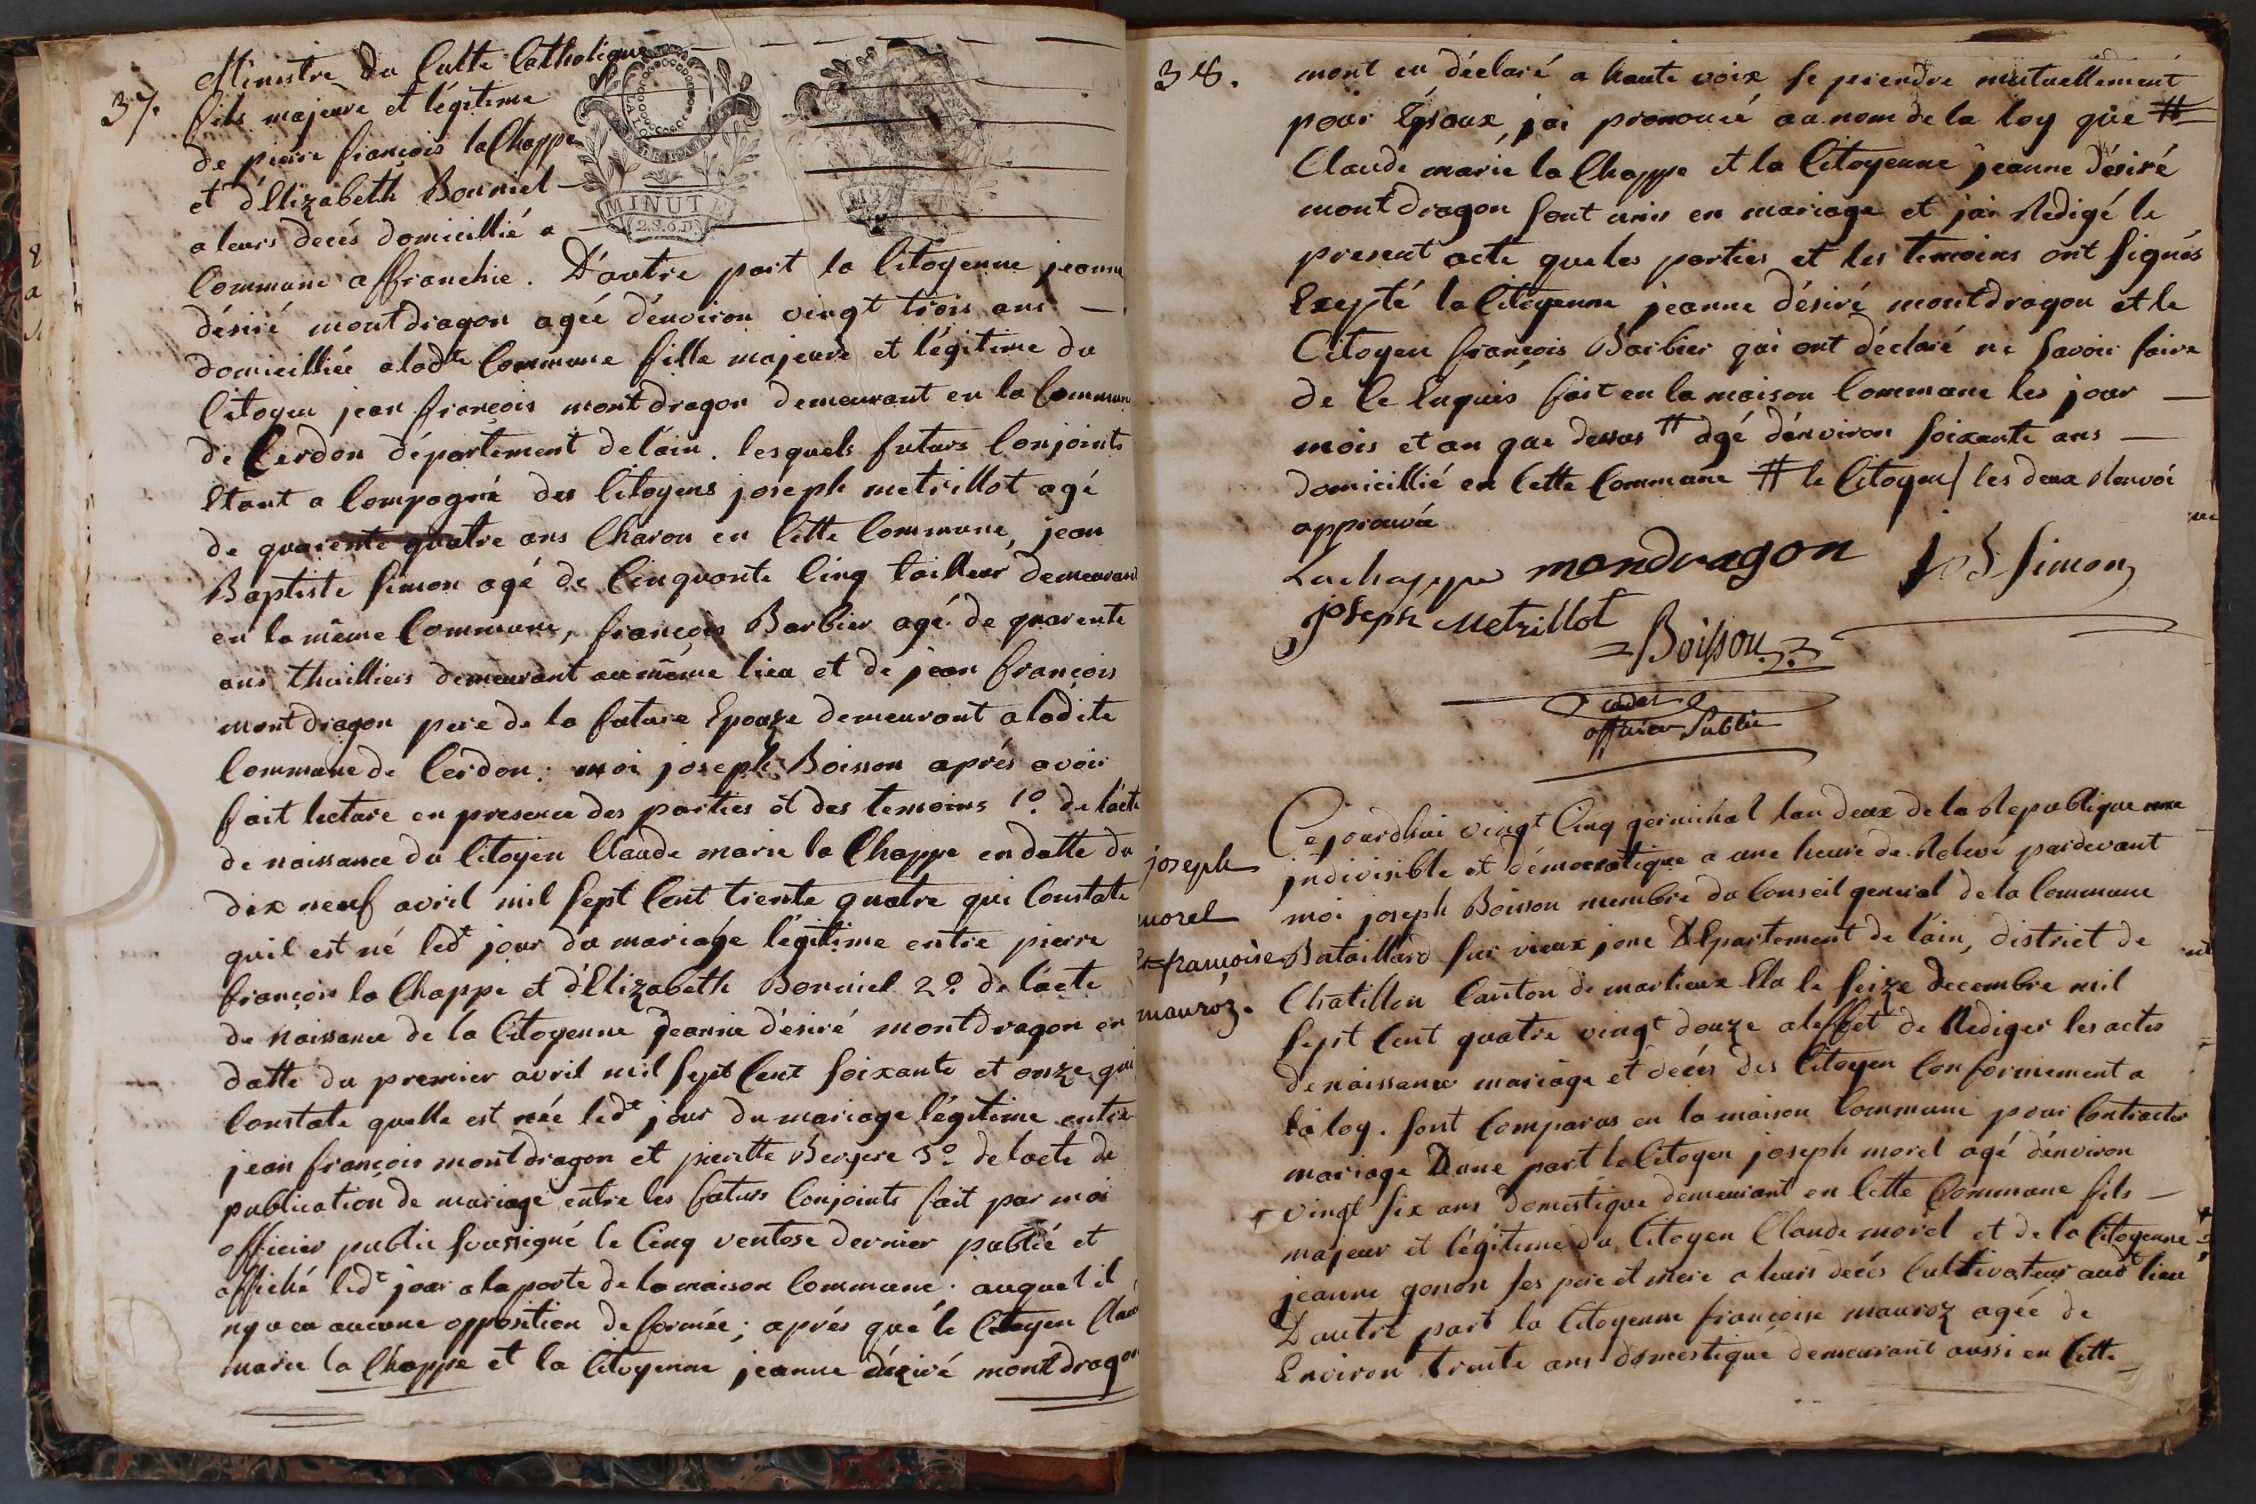 37.
Ministre du Culte Catholique
fils majeure et légitime
de pierre françois la Chappe
et d'Elizabeth Bonniel
a leurs decés domicillié a
MINUTE
2.S.6.D.
Commune affranchie. D'autre part la Citoyenne jeanne
désiré montdragon agéé d'environ vingt trois ans
domicilliée a lad.te Commune fille majeure et légitime du
Citoyen jean françois montdragon demeurant en la Commune
de Cerdon département de l'ain. lesquels futurs Conjoints
Etant a Compagné des Citoyens joseph metrillot agé
de quarente quatre ans Charon en Cette Commune, jean
Baptiste simon agé de Cinquante Cinq tailleur demeurant
en la même Commune, françois Barbier agé de quarente
ans thuilliers demeurant au même lieu et de jean françois
montdragon pere de la future Epouse demeurant a ladite
Commune de Cerdon: moi joseph Boisson aprés avoir
fait lecture en presence des parties et des temoins 1o. de l'acte
de naissance du Citoyen Claude marie la Chappe en datte du
dix neuf avril mil sept Cent trente quatre qui Constate
quil est né led.t jour du mariage légitime entre pierre
françois la Chappe et d'Elizabeth Bonniel 2o. de l'acte
de Naissance de la Citoyenne Jeanne désiré montdragon en
datte du premier avril mil sept Cent soixante et onze qui
Constate quelle est née led.t jour du mariage légitime entre
jean françois montdragon et pierette Bergere 3o. de lacte de
publication de mariage entre les futurs Conjoints fait par moi
officier public soussigné le Cinq ventose dernier publié et
affiché led.t jour a la porte de la maison Commune. auquel il
ny a eu aucune opposition de formée; aprés que le Citoyen Claude
marie la Chappe et la Citoyenne jeanne désiré montdragon
38.
mont eu déclaré a haute voix se prendre mutuellement
pour Epoux, jai prononcé au nom de la loy que #
Claude marie la Chappe et la Citoyenne jeanne désiré
montdragon sont unis en mariage et jai Redigé le
present acte que les parties et les temoins ont signés
Exepté la Citoyenne jeanne désiré montdragon et le
Citoyen françois Barbier qui ont déclaré ne savoir faire
de Ce Enquis fait en la maison Commune les jour
mois et an que dessus # agé d'environ soixante ans
domicillié en Cette Commune # le Citoyen/ les deux Renvoi
approuvée
Lachappe mondragon J B Simon
joseph Metrillot
Boisson
officier Public
joseph
morel
Et françoise
mauroz.
Cejourdhui vingt Cinq germinal lan deux de la Republique une
indivisible et démocratique a une heure de Relevé pardevant
moi joseph Boisson membre du Conseil general de la Commune
Bataillard sur vieux jonc Département de l'ain, district de
Chatillon Canton de marlieux Elu le seize decembre mil
sept Cent quatre vingt douze a leffet de Rediger les actes
de naissance mariage et decés des Citoyen Conformement a
la loy. sont Comparus en la maison Commune pour Contracter
mariage D'une part le Citoyen joseph morel agé d'environ
vingt six ans domestique demeurant en Cette Commune fils
majeur et légitime du Citoyen Claude morel et de la Citoyenne
jeanne gonon ses pere et mere a leurs decés Cultivateurs aud.t lieu
D'autre part la Citoyenne françoise mauroz agéé de
Environ trente ans domestique demeurant aussi en Cette